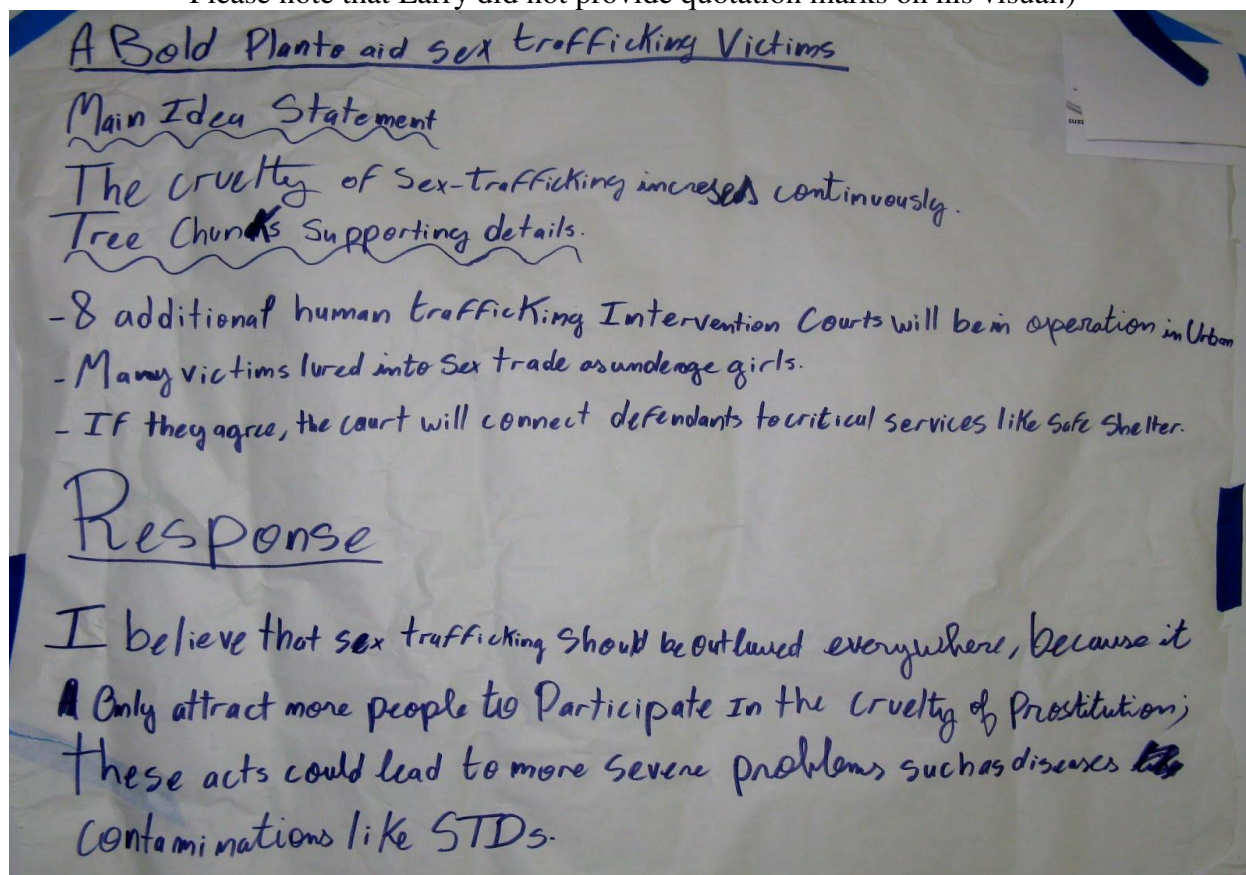 Please note that Larry did not provide quotation marks on his visual.)
A Bold Planto aid sex trafficking Victims
Main Idea Statement
The cruelty of Sex-trafficking incresed continuously.
Tree Chunks Supporting details.
-8 additional human trafficking Intervention Courts will be in operation in Urban
- Many victims lured into Sex trade as underage girls.
- If they agree, the court will connect defendants to critical services like Safe Shelter.
Response
I believe that sex trafficking Should be outlawed everywhere, because it
Only attract more people to Participate In the Cruelty of Prostitution;
these acts could lead to more severe problems such as diseases
contaminations like STDs.